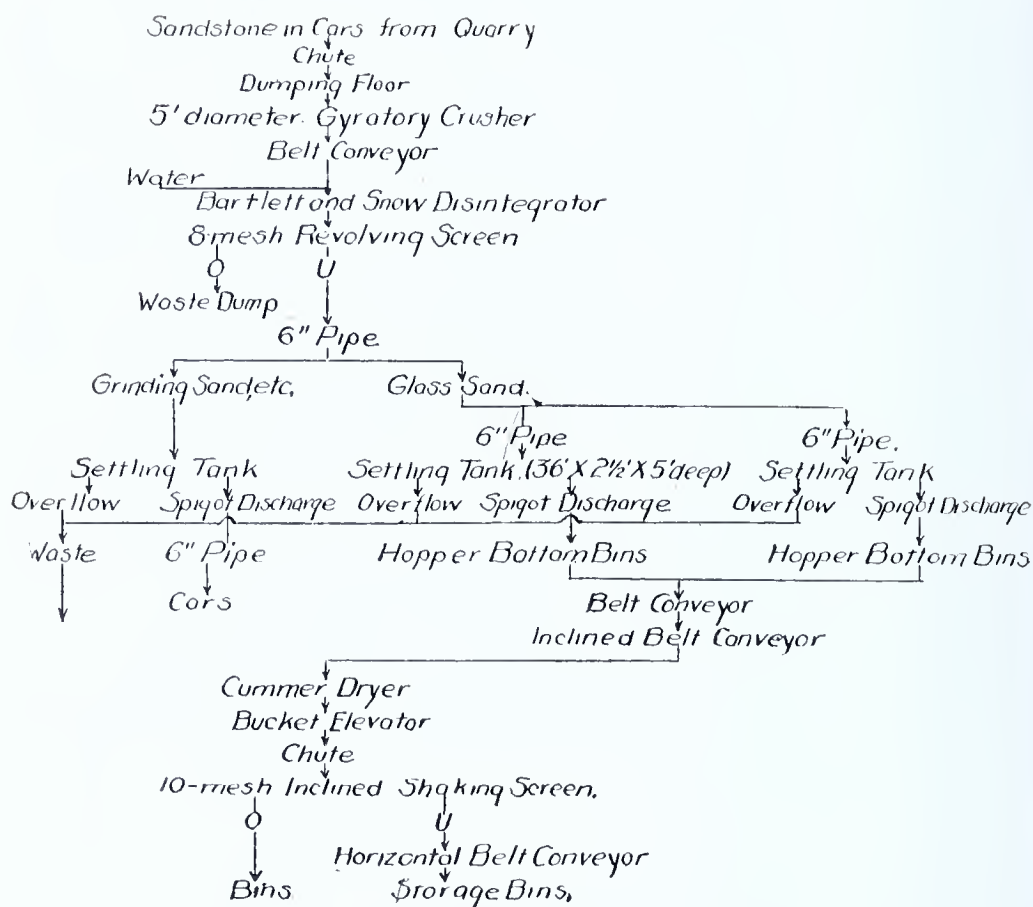 Sandstone in Cars from Quarry
Chute
Dumping Floor
5' diameter. Gyratory Crusher
Belt Conveyor
Water
Bartlett and Snow Disintegrator
8-mesh Revolving Screen
O U
Waste Dump
6" Pipe
Grinding Sand, etc. Glass Sand.
6" Pipe 6" Pipe.
Settling Tank Settling Tank. (36' X 2½' X 5' deep) Settling Tank
Overflow Spigot Discharge Overflow Spigot Discharge Overflow Spigot Discharge
Waste 6" Pipe Hopper Bottom Bins Hopper Bottom Bins
Cars Belt Conveyor
Inclined Belt Conveyor
Cummer Dryer
Bucket Elevator
Chute
10-mesh Inclined Shaking Screen.
O U
Horizontal Belt Conveyor
Bins Srorage Bins.